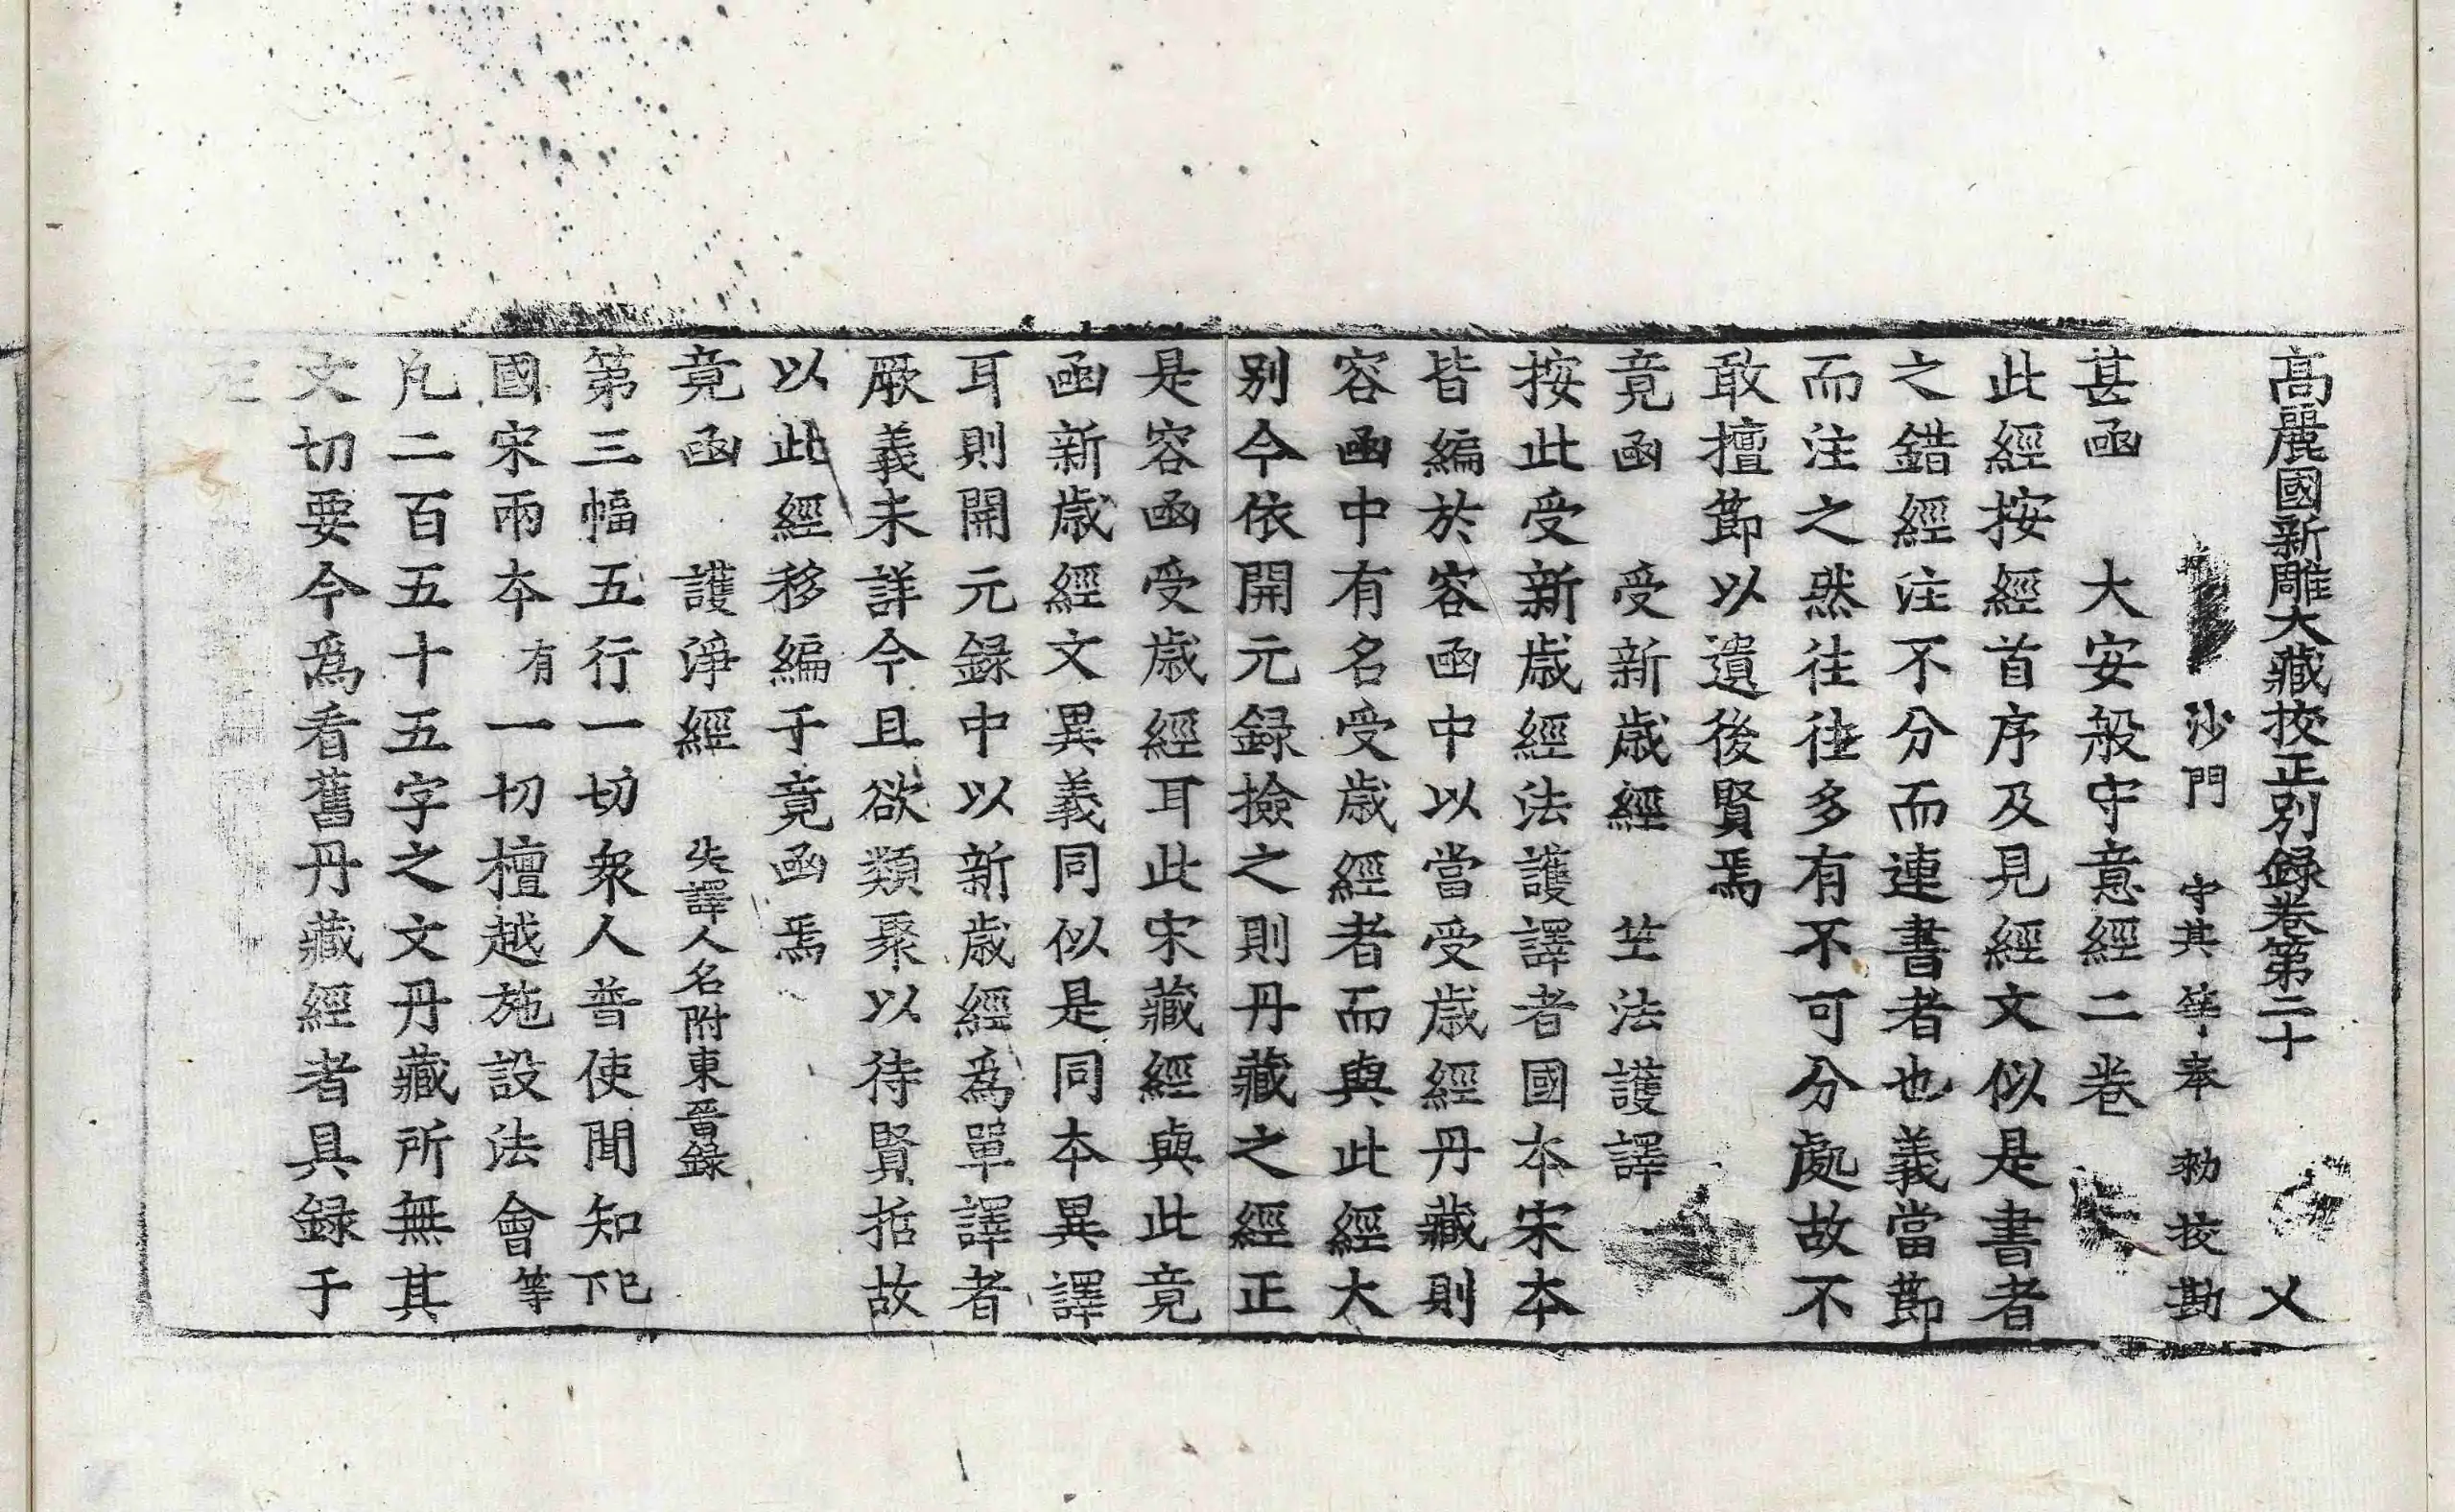 高麗國新雕大藏挍正別録卷第二十 㐅
沙門 守其 等 奉 勑 挍 勘
甚函 大安般守意經二卷
此經按經首序及見經文似是書者
之錯經注不分而連書者也義當節
而注之然往往多有不可分處故不
敢擅節以遺後賢焉
竟函 受新歳經 竺法護譯
按此受新歳經法護譯者國本宋本
皆編於容函中以當受歳經丹藏則
容函中有名受歳經者而與此經大
别今依開元録撿之則丹藏之經正
是容函受歳經耳此宋藏經與此竟
函新歳經文異義同似是同本異譯
耳則開元録中以新歳經爲單譯者
厥義未詳今且欲類聚以待賢括故
以此經移編于竟函焉
竟函 護淨經 失譯人名附東晉録
第三幅五行一切衆人普使聞知下已
國宋兩本有一切檀越施設法會等
凡二百五十五字之文丹藏所無其
文切要今爲看舊丹藏經者具録于